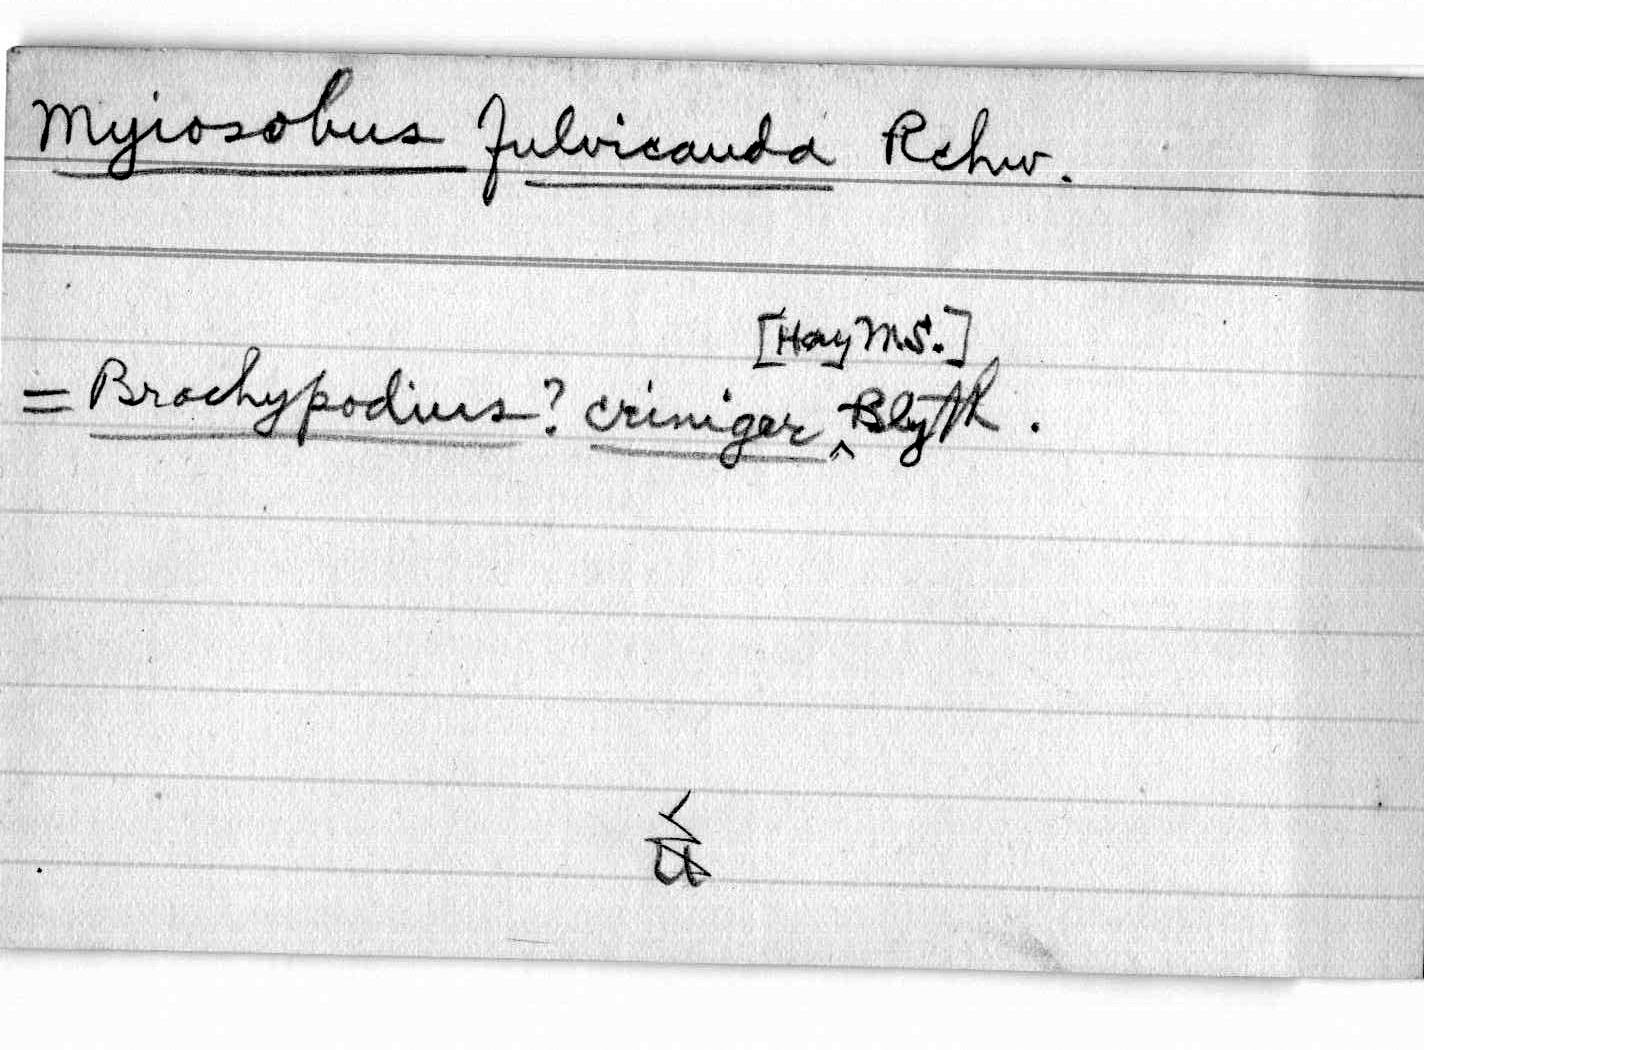 Myiosobus fulvicauda Rchw.
[Hay MS.]
= Brachypodius? criniger ^ Blyth.